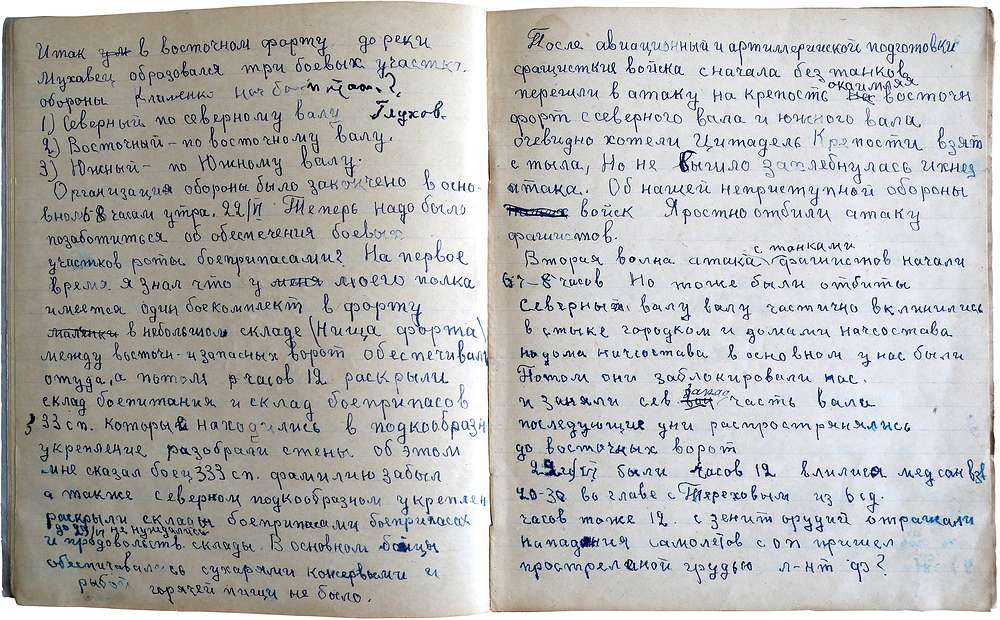 Итак в восточном форту до реки
Мухавец образовался три боевых участк.
обороны Клименко
1) Северный по северному валу Глухов.
2) Восточный – по восточному валу.
3) Южный – по Южному валу.
Организация обороны было закончено в осно-
вном 8 часам утра. 22/VI Теперь надо было
позаботиться об обеспечения боевых
участков роты боеприпасами? На первое
время я знал что у меня моего полка
имеется один боекомплект в форту
маленки в небольшом складе (Ниша форта)
между восточн- и запасных ворот обеспечивали
оттуда, а потом часов 12 раскрыли
склад боепитания и склад боеприпасов
333 сп. которы находились в подкообразн
укрепление разобрали стены об этом
мне сказал боец 333 сп. фамилию забыл
а также северном подкообразном укреплен
раскрыли склады боеприпасами боеприпасах
до 29/VI не нуждались
и продовольств. склады. В основном бойцы
обеспечивались сухарями консервыми и
рыбой горячей пищи не было.
После авиационный и артиллерийской подготовки
фашисткие войска сначала без танков
окаймляя
перешли в атаку на крепость на восточн
форт с северного вала и южного вала
очевидно хотели Цитадель Крепости взят
с тыла, Но не вышло захлебнулась их
атака. Об нашей неприступной обороны
войск Яростно отбили атаку
фашистов.
с танками
Вторая волна атака фашистов начали
67-8 часов Но тоже были отбиты
Северный валу валу частично вклинились
в стыке городком и домами начсостава
но дома начсостава в основном у нас были
Потом они заблокировали нас.
запад
и заняли сев вал часть вала
последующие дни распространялись
до восточных ворот
22/VI были часов 12 влился медсанвзв
20-30 во главе с Тереховым из 6 сд.
часов тоже 12. с зенит орудий отражали
нападения самолетов с оп пришел
простреленой грудью л-нт Ф?